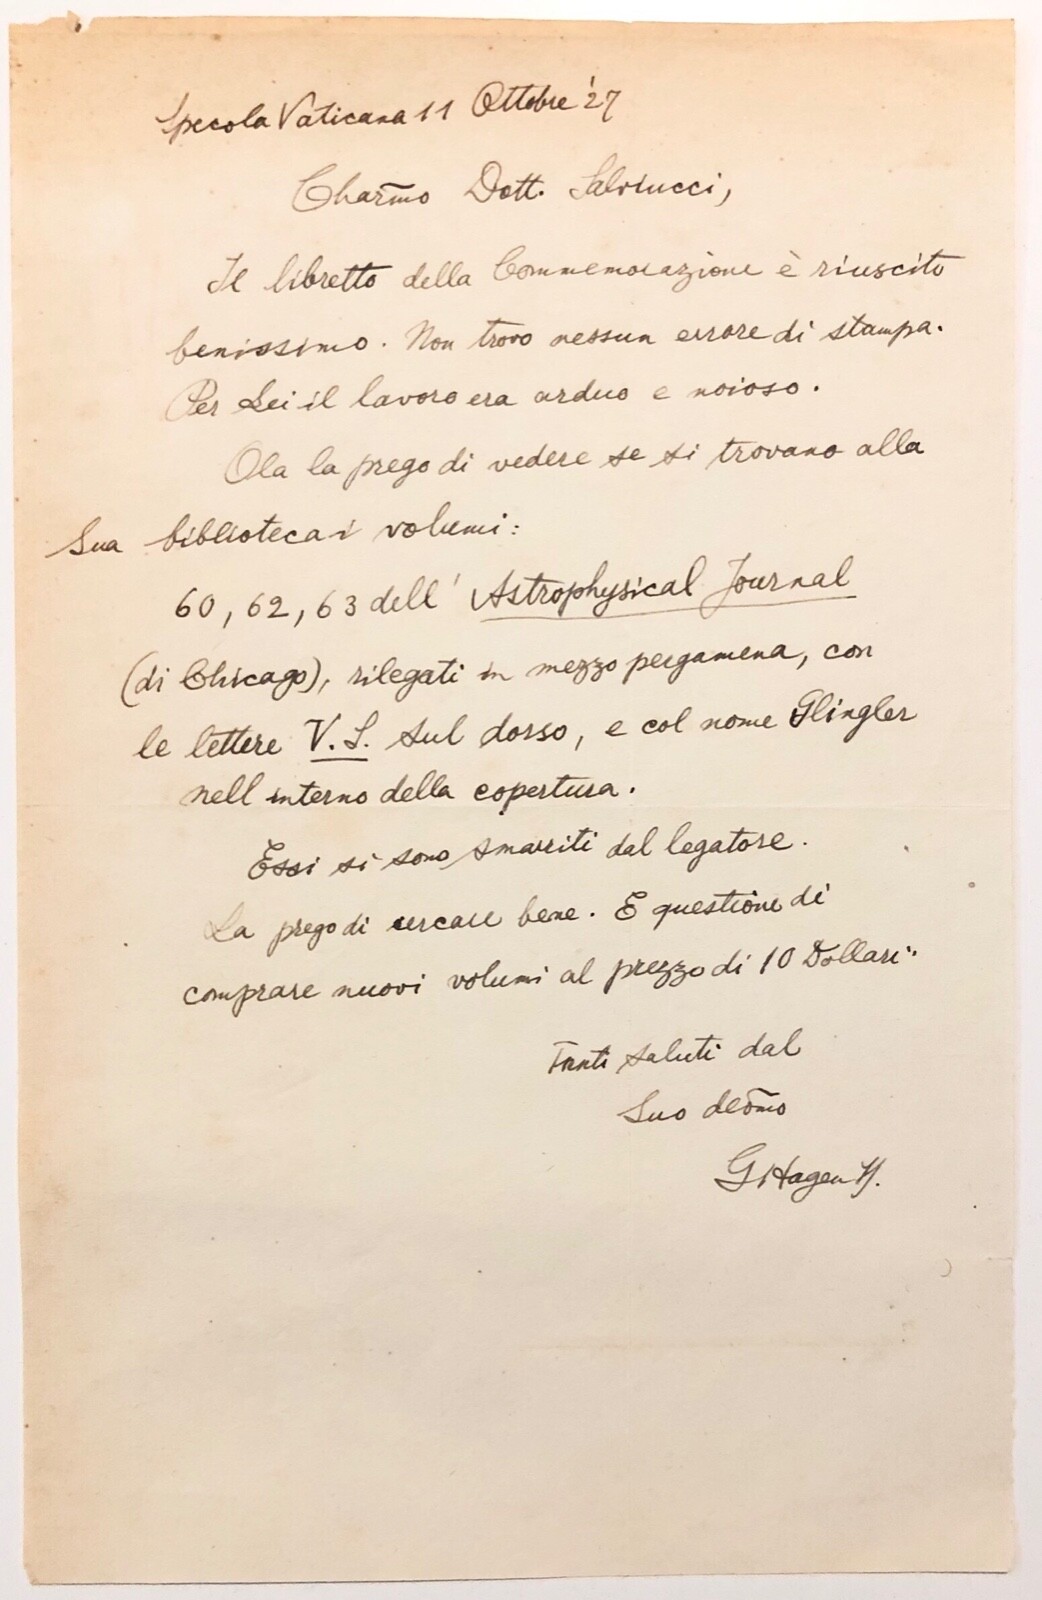 Specola Vaticana 11 Ottobre '27
Charm̄o Dott. Salviucci,
Il libretto della Commemorazione è riuscito
benissimo. Non trovo nessun errore di stampa.
Per Lei il lavoro era arduo e noioso.
Ora la prego di vedere se si trovano alla
Sua biblioteca i volumi:
60, 62, 63 dell' Astrophysical Journal
(di Chicago), rilegati in mezzo pergamena, con
le lettere V. S. sul dorso, e col nome Glingler
nell interno della copertura.
Essi si sono smarriti dal legatore.
La prego di cercare bene. E questione di
comprare nuovi volumi al prezzo di 10 Dollari.
Tanti saluti dal
Suo deōmo
G Hagen